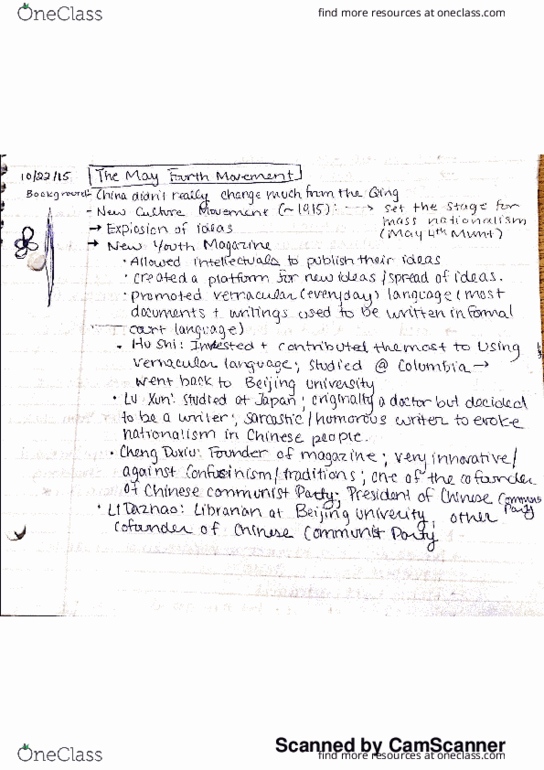 OneClass
find more resources at oneclass.com
10/22/15 The May Fourth Movement
Background: China didn't really change much from the Qing
- New Culture Movement (~1915): → set the stage for
mass nationalism
(May 4th Mvmt)
→ Explosion of ideas
→ New Youth Magazine
• Allowed intellectuals to publish their ideas
• created a platform for new ideas/spread of ideas.
• promoted vernacular (everyday) language (most
documents + writings used to be written in formal
court language)
• Hu Shi: Invested + contributed the most to using
vernacular language; studied @ Columbia →
went back to Beijing university
• Lu Xun: studied at Japan; originally a doctor but decided
to be a writer; sarcastic/humorous writer to evoke
nationalism in Chinese people.
• Cheng Duxiu: Founder of magazine; very innovative/
against Confusinism/traditions; one of the cofounder
of Chinese communist Party; President of Chinese Communist
Party
• Li Dazhao: Librarian at Beijing univerity, other
cofounder of Chinese Communist Party
Scanned by CamScanner
OneClass
find more resources at oneclass.com